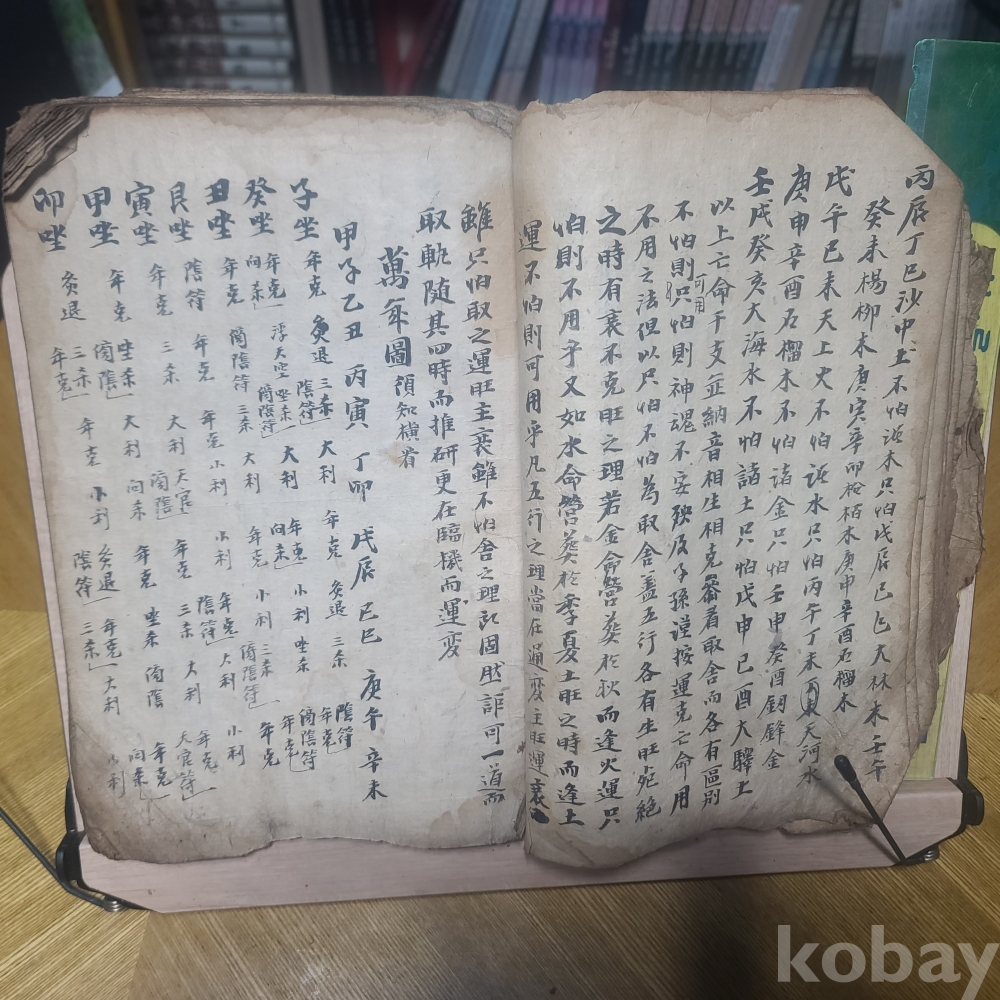 丙辰丁巳沙中土不怕諸木只怕戊辰己巳大林木壬午
癸未楊柳木庚寅辛卯松栢木庚申辛酉石榴木
戊午己未天上火不怕諸水只怕丙午丁未天河水
庚申辛酉石榴木不怕諸金只怕壬申癸酉釼鋒金
壬戌癸亥大海水不怕諸土只怕戊申己酉大驛土
以上亡命干支並納音相生相克叅看取舍而各有區別
不怕則可用只怕則神魂不安殃及子孫謹按運克亡命用
不用之法但以只怕不怕為取舍盖五行各有生旺死絶
之時有衰不克旺之理若金命營葬於秋而逢火運只
怕則不用乎又如水命營葬於季夏土旺之時而逢土
運不怕則可用乎凡五行之理當在通變主旺運衰
雖只怕取之運旺主衰雖不怕舍之理所固然詎可一道而
取軌隨其四時而推研更在臨機而運変
萬年圖 須知橫看
甲子乙丑 丙寅 丁卯 戊辰 己巳 庚午 辛未
子坐 年克 灸退 三杀 陰符 大利 年克 灸退 三杀 陰符
癸坐 年克 向杀 浮天空 坐杀 傍陰符 大利 年克 向杀 小利 坐杀 年克 傍陰符
丑坐 年克 傍陰符 三杀 大利 年克 小利 三杀 傍陰符 年克
艮坐 陰符 年克 年克 小利 小利 陰符 年克 大利 小利
寅坐 年克 三杀 大利 天官 傍陰 年克 三杀 大利 年克 天官符
甲坐 年克 坐杀 傍陰 大利 向杀 年克 坐杀 傍陰 年克 向杀
卯坐 灸退 年克 三杀 年克 小利 灸退 陰符 年克 三杀 大利 小利
kobay